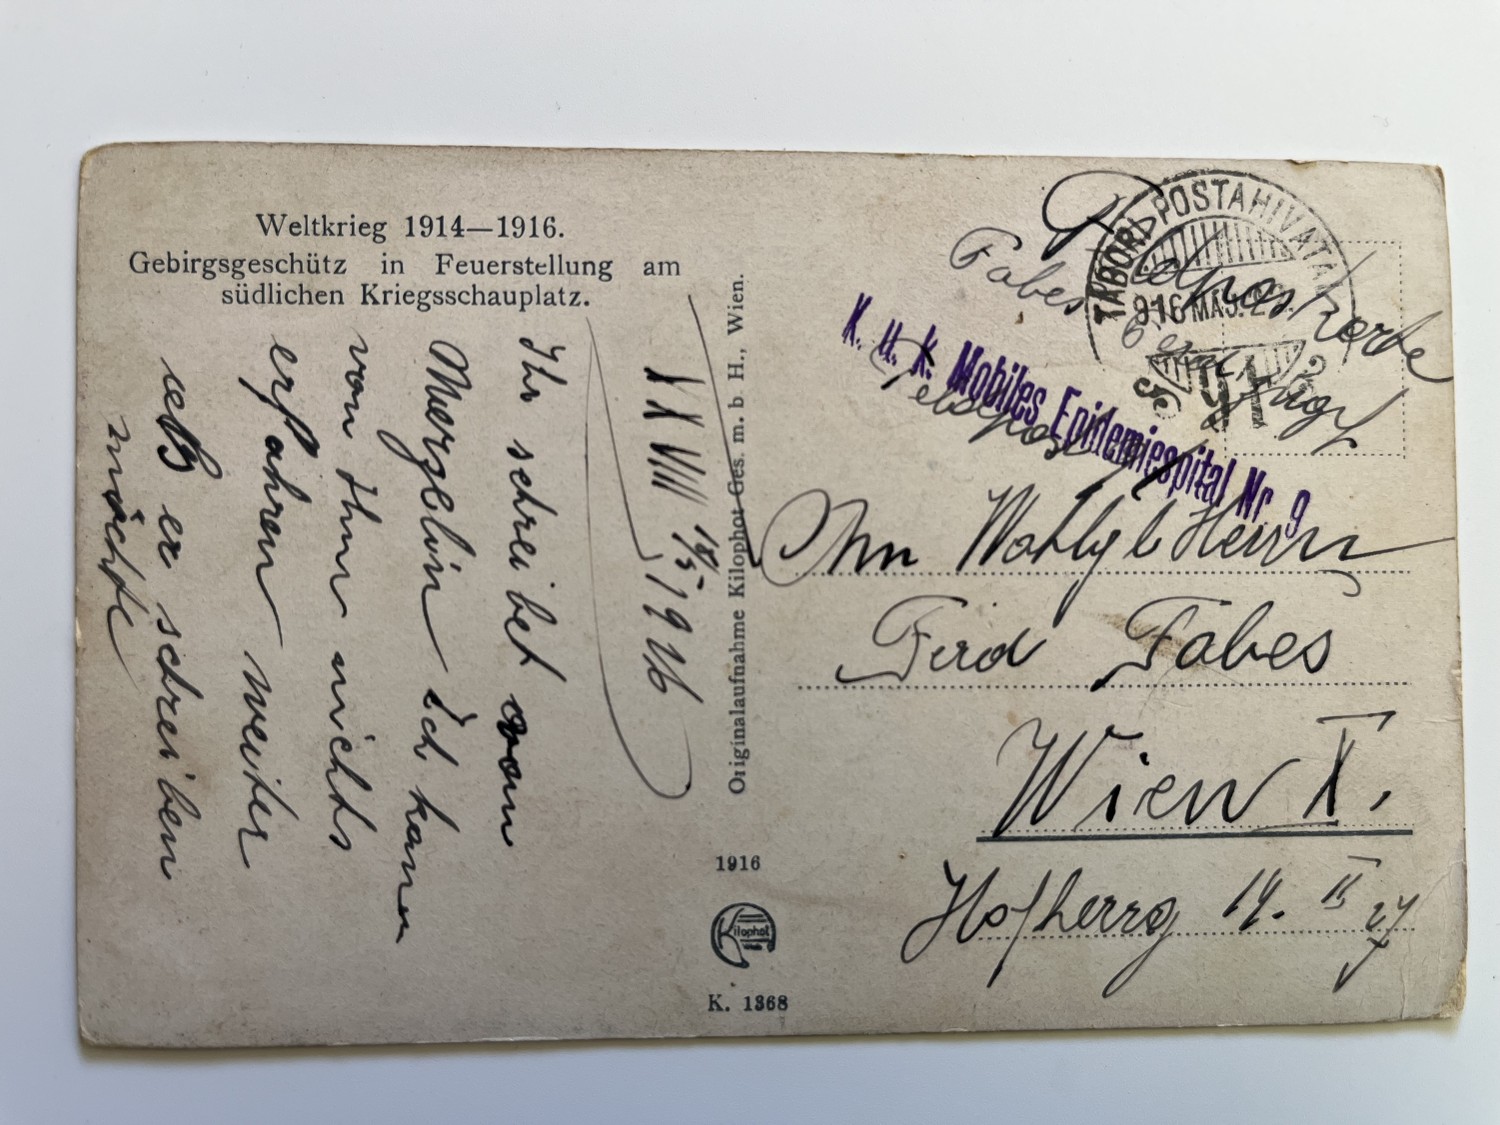 Weltkrieg 1914—1916.
Gebirgsgeschütz in Feuerstellung am
südlichen Kriegsschauplatz.
XXVIII 18/5 1916
Ihr schreibet vom
Ich kann
von Ihm nichts
erfahren weiter
er schreiben
möchte
Originalaufnahme Kilophot Ges. m. b. H., Wien.
1916
Kilophot
K. 1368
Feldpostkarte
Fabes
Feldpost
TÁBORI POSTAHIVATAL
916 MÁJ. 2
91
K. u. K. Mobiles Epidemiespital Nr. 9
An Wohlgeb Herrn
Ferd Fabes
Wien X.
Hofherrg 14. II